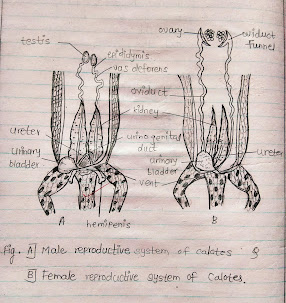 ovary
oviduct
funnel
testis
epididymis
vas deferens
oviduct
kidney
ureter
urinogenital
duct
urinary
bladder
urinary
bladder
ureter
vent
A
hemipenis
B
Fig. A Male reproductive system of calotes &
B Female reproductive system of Calotes.